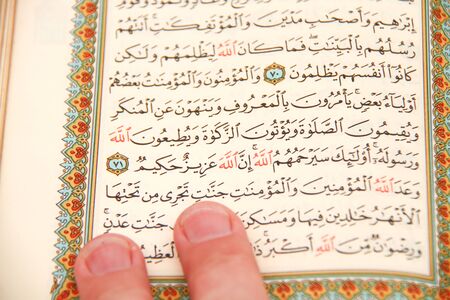 إِبْرَٰهِيمَ وَأَصْحَٰبِ مَدْيَنَ وَٱلْمُؤْتَفِكَٰتِ أَتَتْهُمْ
رُسُلُهُم بِٱلْبَيِّنَٰتِ ۖ فَمَا كَانَ ٱللَّهُ لِيَظْلِمَهُمْ وَلَٰكِن
كَانُوٓا۟ أَنفُسَهُمْ يَظْلِمُونَ ٧٠ وَٱلْمُؤْمِنُونَ وَٱلْمُؤْمِنَٰتُ بَعْضُهُمْ
أَوْلِيَآءُ بَعْضٍ ۚ يَأْمُرُونَ بِٱلْمَعْرُوفِ وَيَنْهَوْنَ عَنِ ٱلْمُنكَرِ
وَيُقِيمُونَ ٱلصَّلَوٰةَ وَيُؤْتُونَ ٱلزَّكَوٰةَ وَيُطِيعُونَ ٱللَّهَ
وَرَسُولَهُۥٓ ۚ أُو۟لَٰٓئِكَ سَيَرْحَمُهُمُ ٱللَّهُ ۗ إِنَّ ٱللَّهَ عَزِيزٌ حَكِيمٌ ٧١
وَعَدَ ٱللَّهُ ٱلْمُؤْمِنِينَ وَٱلْمُؤْمِنَٰتِ جَنَّٰتٍ تَجْرِى مِن تَحْتِهَا
ٱلْأَنْهَٰرُ خَٰلِدِينَ فِيهَا وَمَسَٰكِنَ جَنَّٰتِ عَدْنٍ ۚ
وَرِضْوَٰنٌ مِّنَ ٱللَّهِ أَكْبَرُ ۚ ٱلْعَظِيمُ